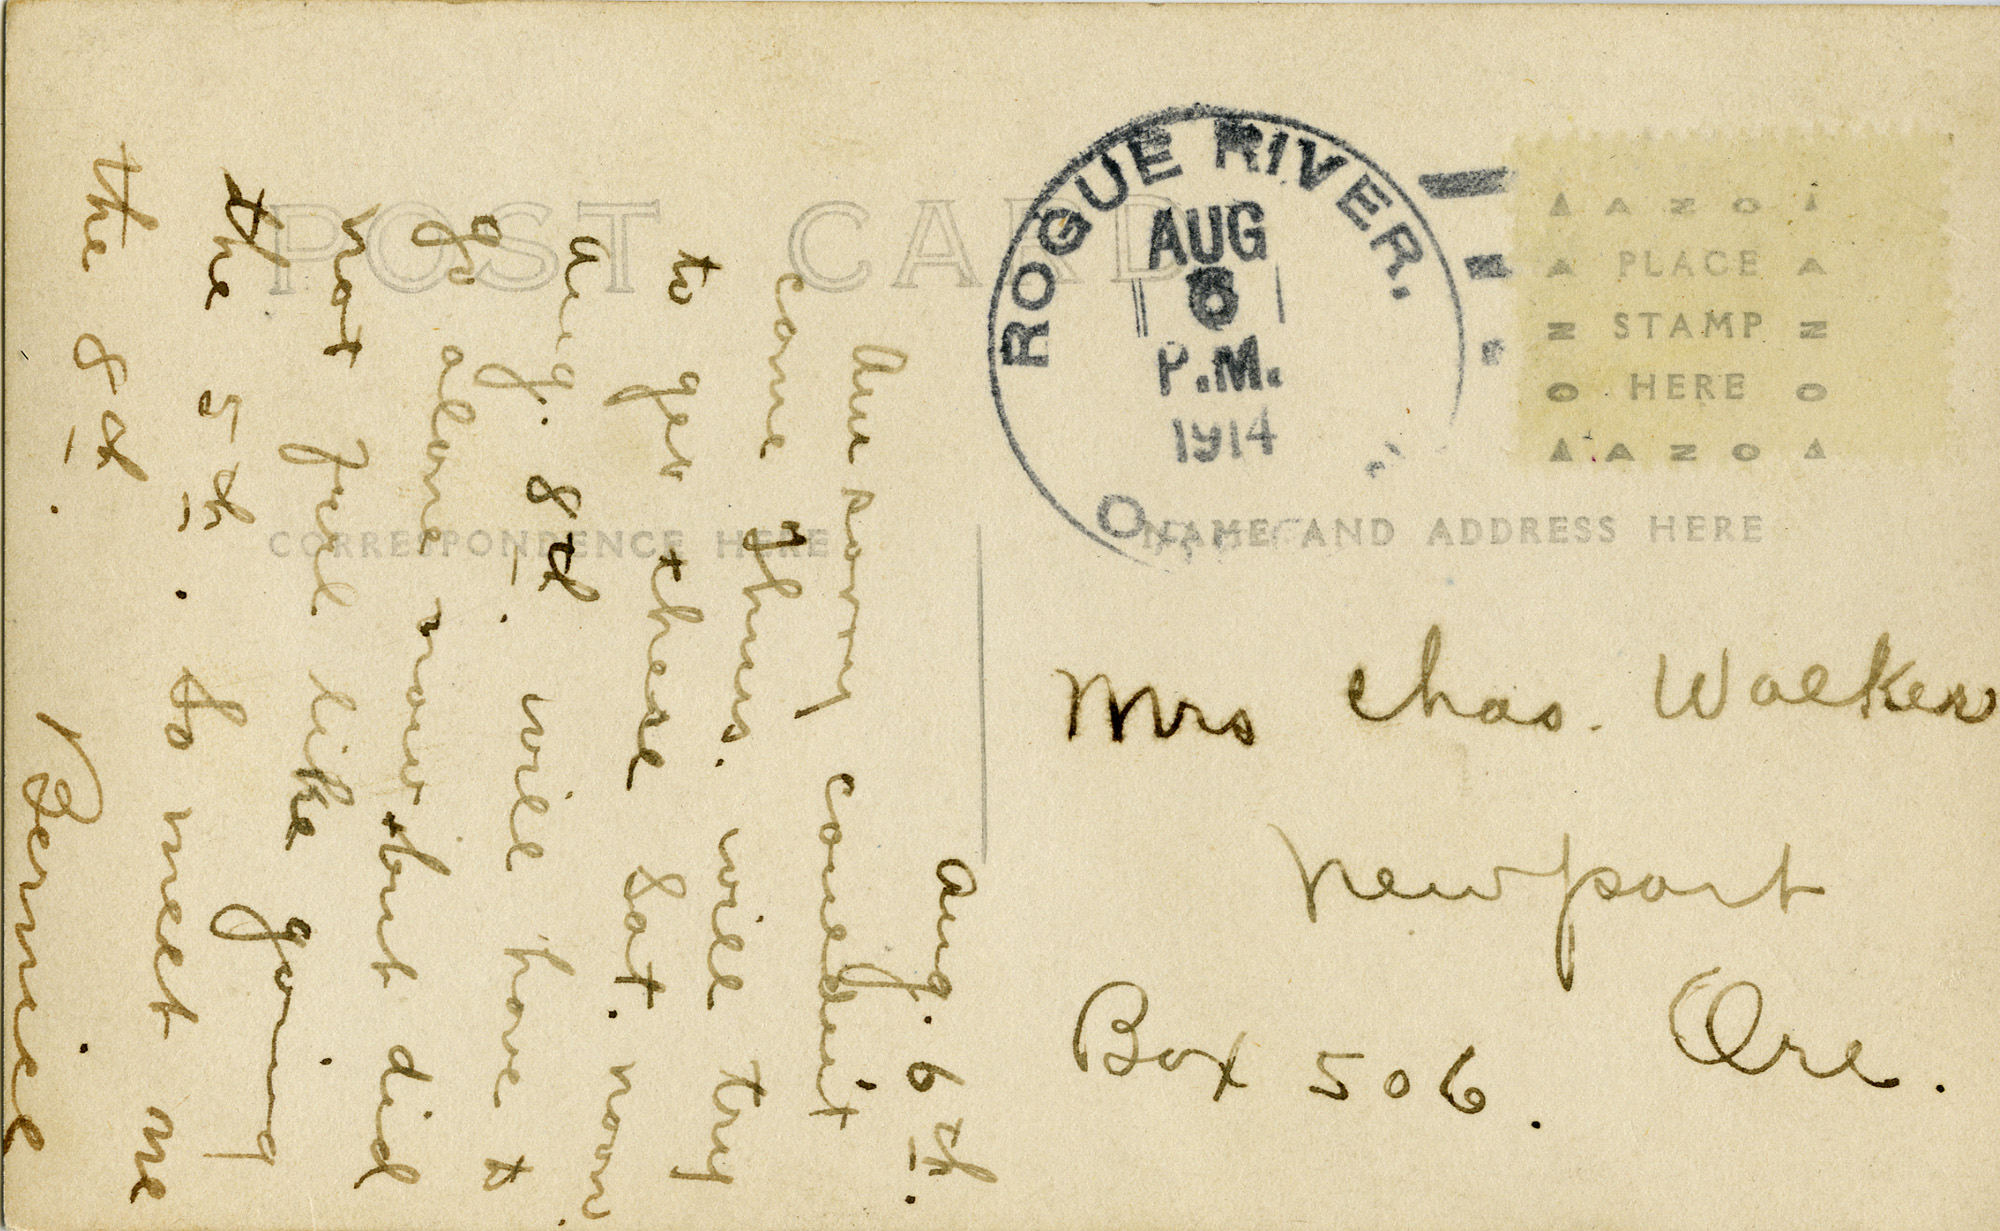 POST CARD
CORRESPONDENCE HERE
NAME AND ADDRESS HERE
ROGUE RIVER.
AUG
6
P.M.
1914
O
AZO
PLACE
STAMP
HERE
AZO
Aug. 6th.
Am sorry couldn't
come Thurs. will try
to get there Sat. noon
Aug. 8th. will have to
go alone now but did
not feel like going
the 5th. So meet me
the 8th.
Bernice
Mrs Chas. Walker
Newport
Ore.
Box 506.